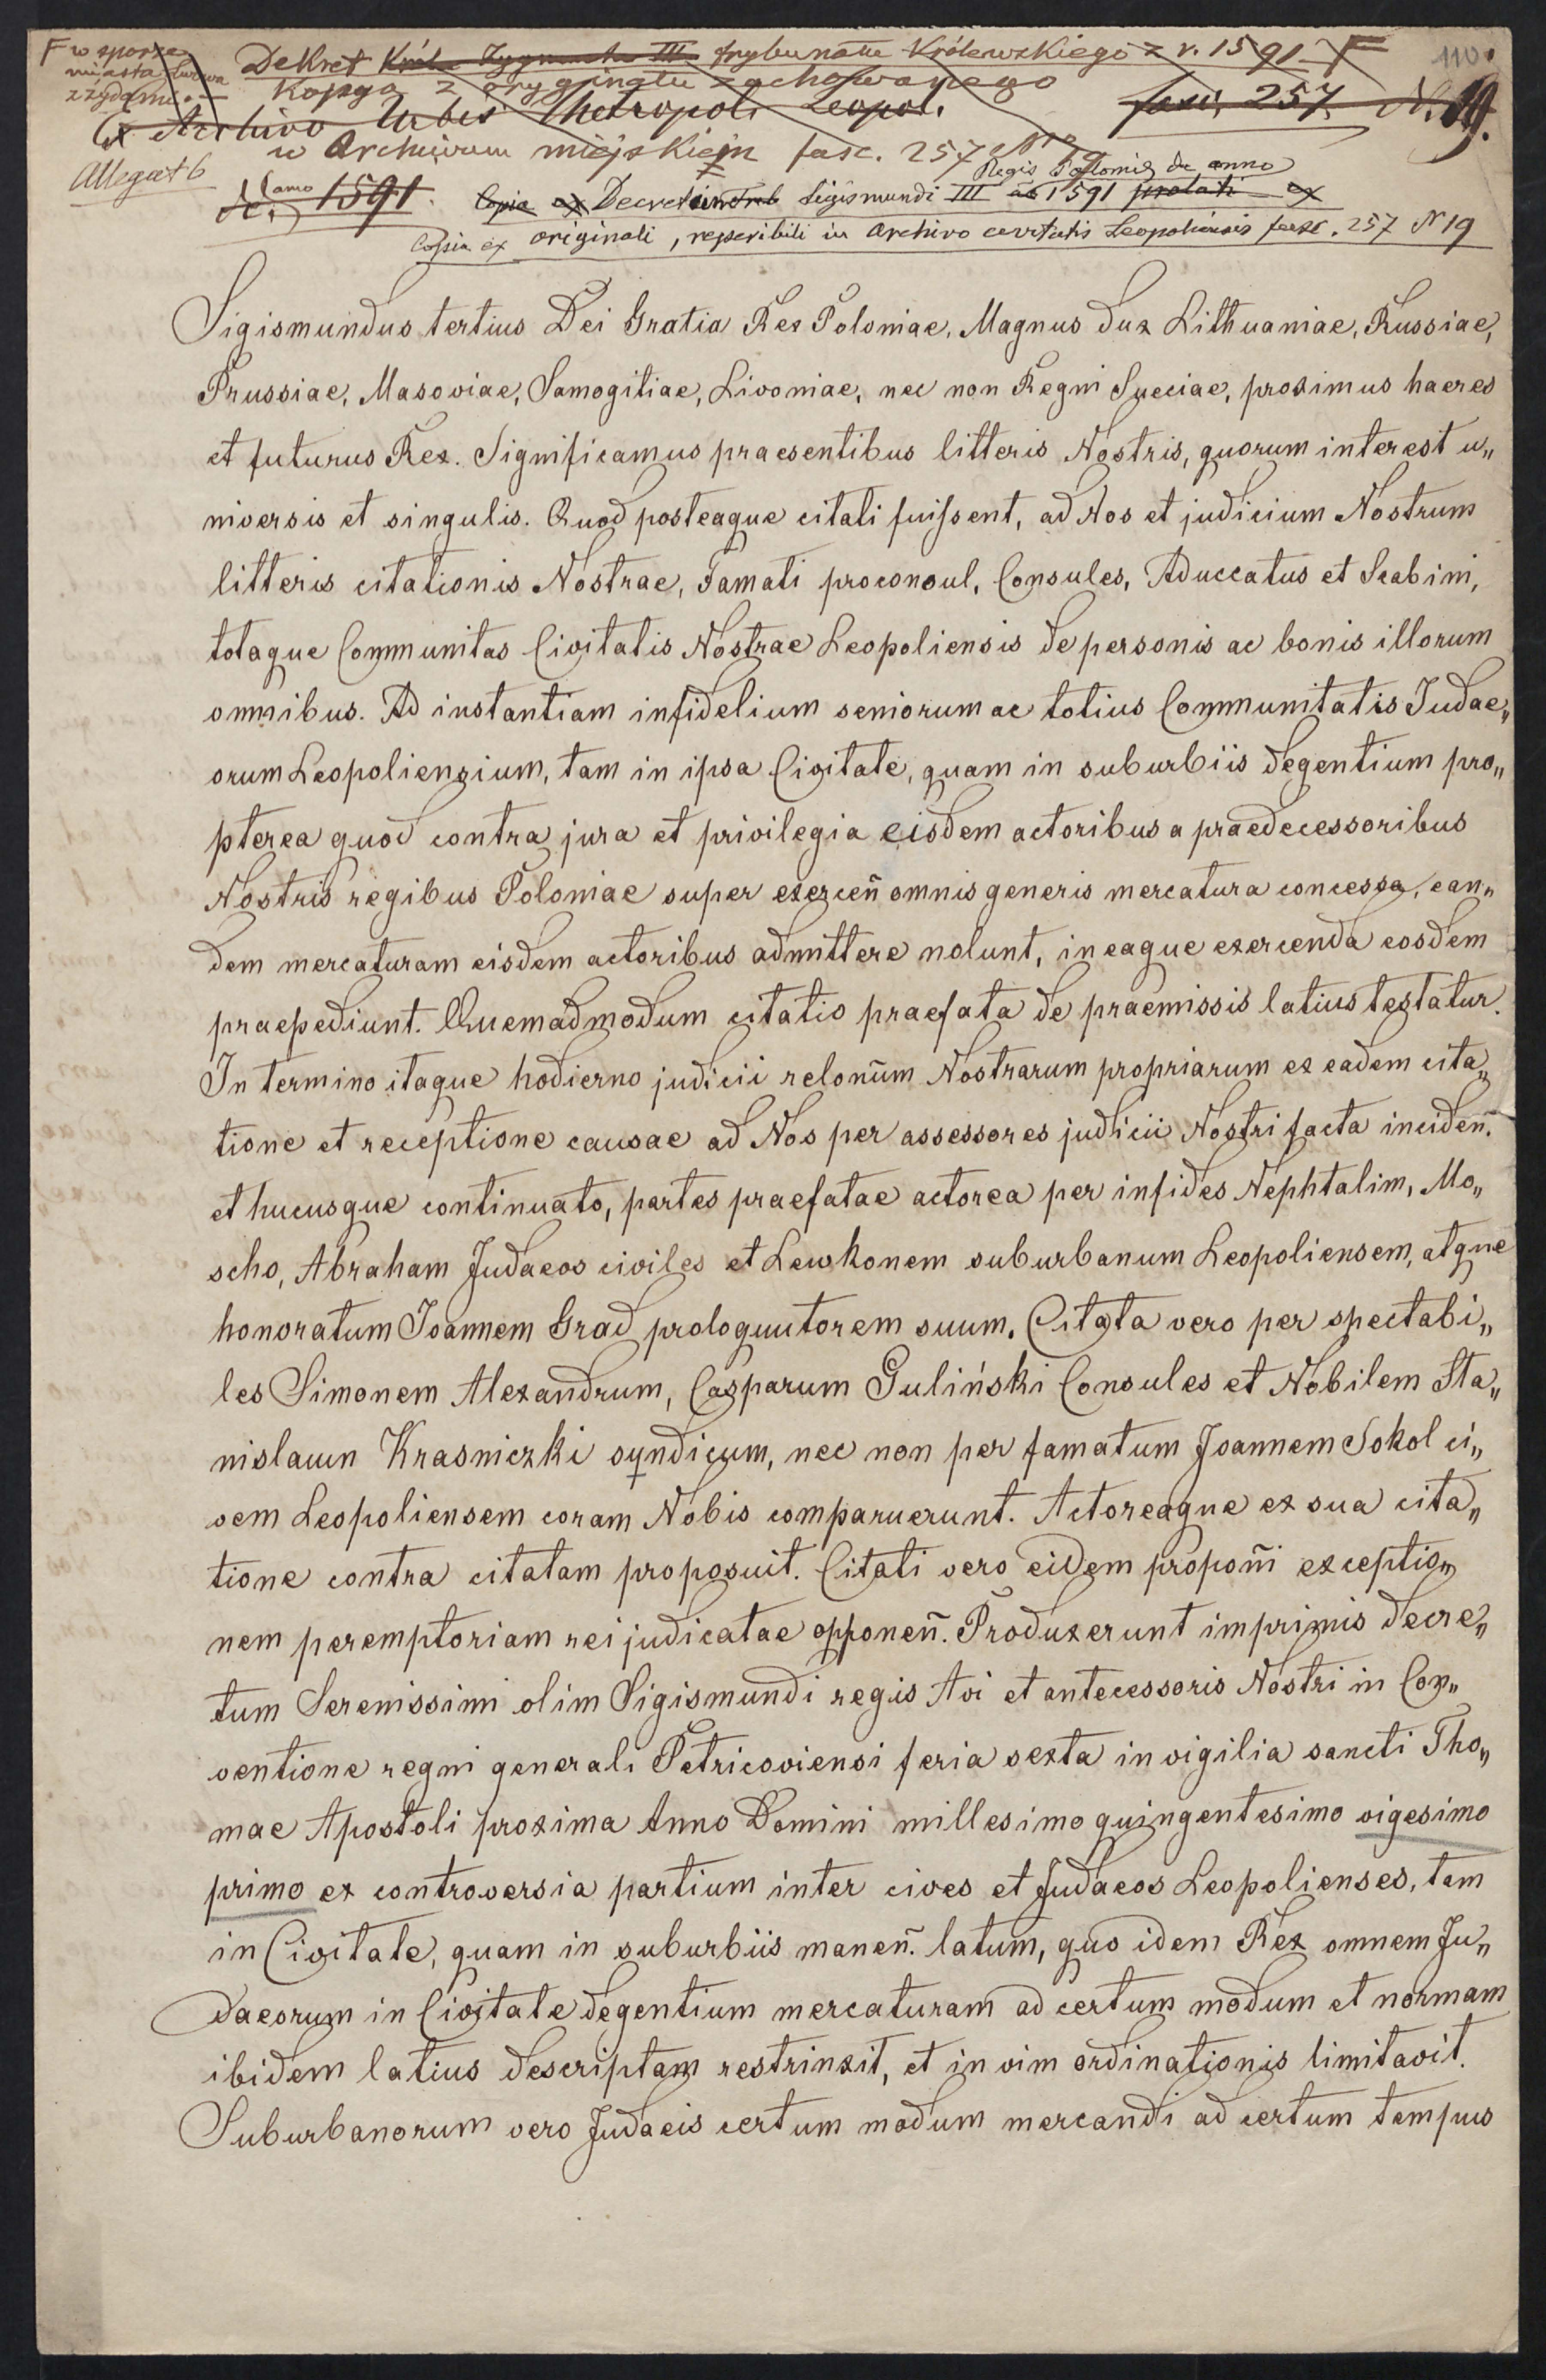 F w sporze
miasta Lwowa
z żydami
Dekret Króla Zygmunta III trybunału Królewskiego z r. 1591 F
110.
Kopya z oryginału zachowanego
Ex Archivo Urbis Metropoli Leopol. fasc. 257 N. 19.
w Archiwum miejskiem fasc. 257 N 19
Allegat 6
Regis Poloniae de anno
de amo 1591. Copia ex Decreti Sigismundi III ao 1591 prolati ex
Copia ex originali, reperibili in Archivo civitatis Leopoliensis fasc. 257 N 19
Sigismundus tertius Dei Gratia Rex Poloniae, Magnus dux Lithuaniae, Russiae,
Prussiae, Masoviae, Samogitiae, Livoniae, nec non Regni Sueciae, proximus haeres
et futurus Rex. Significamus praesentibus litteris Nostris, quorum interest u„
niversis et singulis. Quod posteaque citati fuissent, ad Nos et judicium Nostrum
litteris citationis Nostrae, Famati proconsul, Consules, Aduccatus et Scabini,
totaque Communitas Civitatis Nostrae Leopoliensis de personis ac bonis illorum
omnibus. Ad instantiam infidelium seniorum ac totius Communitatis Judae„
orum Leopoliensium, tam in ipsa Civitate, quam in suburbiis degentium pro„
pterea quod contra jura et privilegia eisdem actoribus a praedecessoribus
Nostris regibus Poloniae super exerceñ omnis generis mercatura concessa, ean„
dem mercaturam eisdem actoribus admittere nolunt, in eaque exercenda eosdem
praepediunt. Quemadmodum citatio praefata de praemissis latius testatur.
In termino itaque hodierno judicii relonũm Nostrarum propriarum ex eadem cita„
tione et receptione causae ad Nos per assessores judicii Nostri facta incideñ.
et hucusque continuato, partes praefatae actorea per infides Nephtalim, Mo„
scho, Abraham Judaeos civiles et Lewkonem suburbanum Leopoliensem, atque
honoratum Joannem Grad prologuutorem suum. Citata vero per spectabi„
les Simonem Alexandrum, Casparum Guliński Consules et Nobilem Sta„
nislaum Krasniczki syndicum, nec non per famatum Joannem Sokol ci„
vem Leopoliensem coram Nobis comparuerunt. Actoreaque ex sua cita„
tione contra citatam proposuit. Citati vero eidem propoñi exceptio„
nem peremptoriam rei judicatae opponeñ. Produxerunt imprimis decre„
tum Serenissimi olim Sigismundi regis Avi et antecessoris Nostri in Con„
ventione regni generali Petricoviensi feria sexta in vigilia sancti Tho„
mae Apostoli proxima Anno Domini millesimo quingentesimo vigesimo
primo ex controversia partium inter cives et Judaeos Leopolienses, tam
in Civitate, quam in suburbiis maneñ. latum, quo idem Rex omnem Ju„
daeorum in Civitate degentium mercaturam ad certum modum et normam
ibidem latius descriptam restrinxit, et in vim ordinationis limitavit.
Suburbanorum vero Judaeis certum modum mercandi ad certum tempus